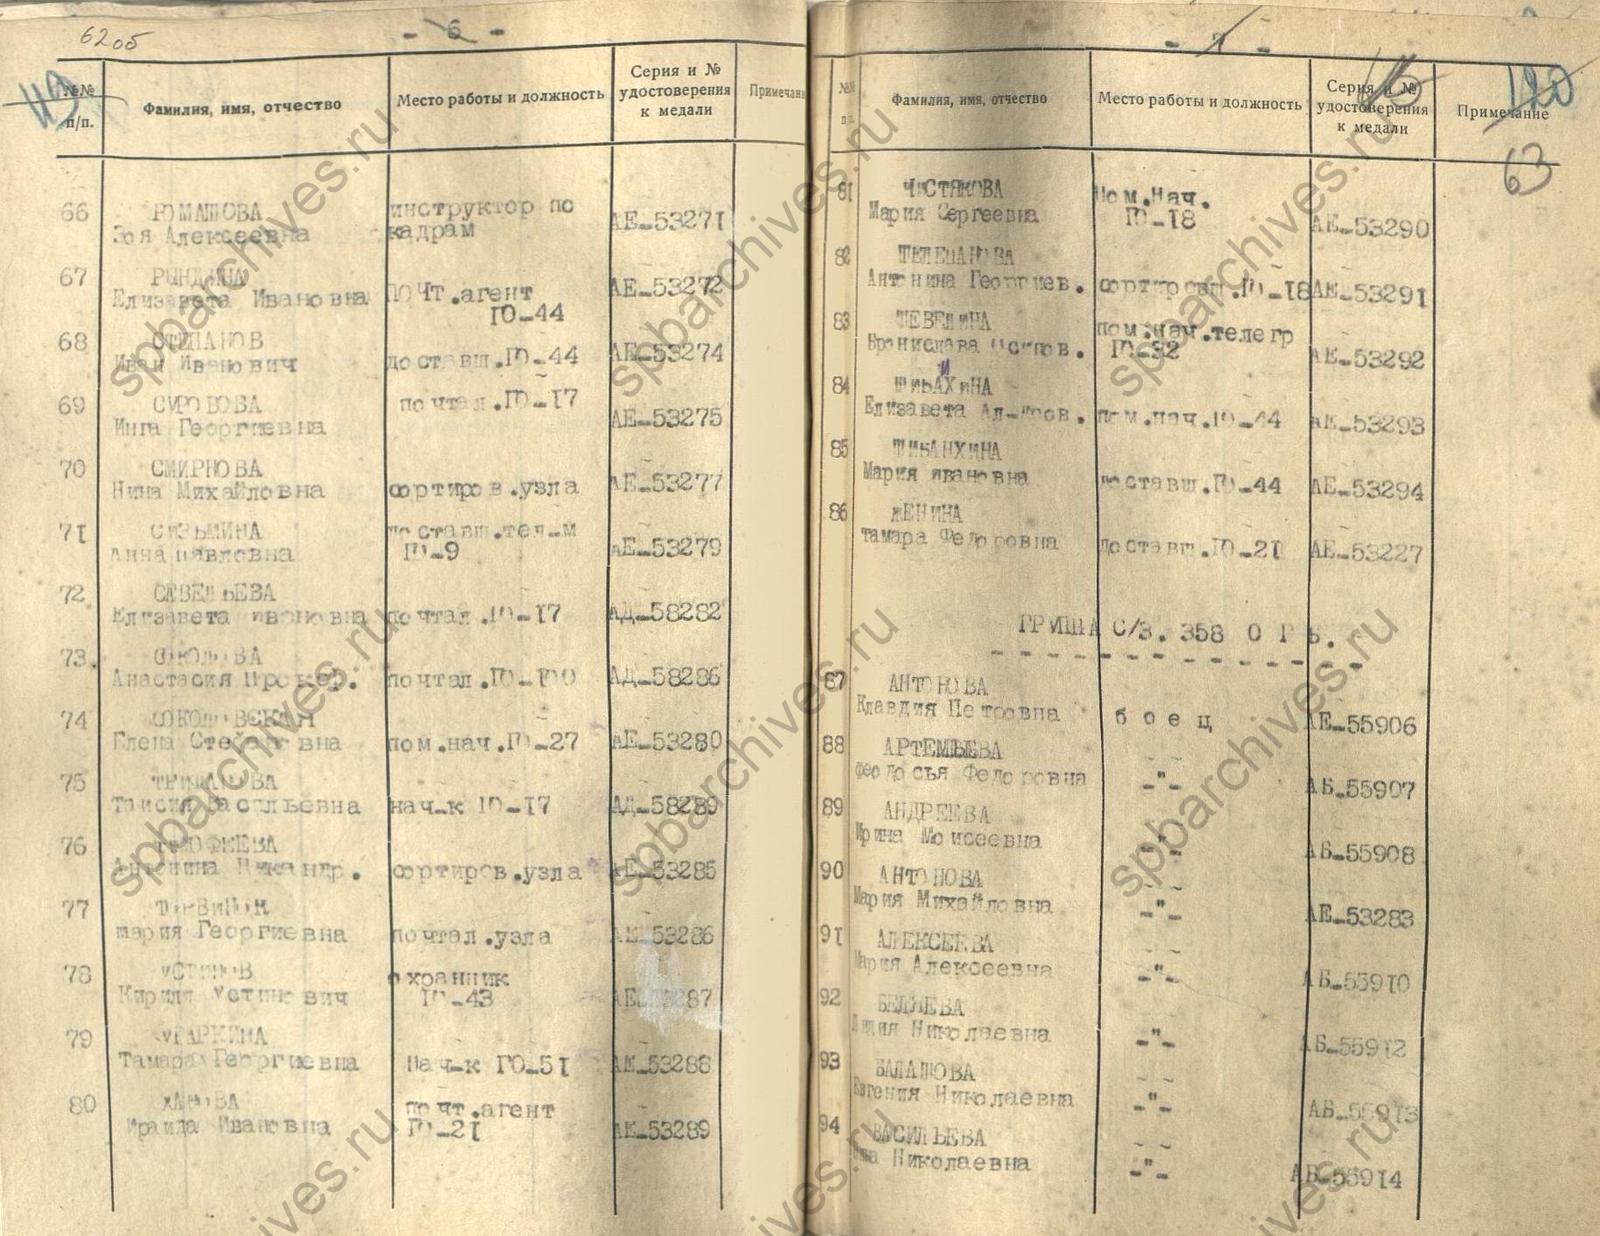 62об
- 6 -
119
№№ п/п.
Фамилия, имя, отчество
Место работы и должность
Серия и № удостоверения к медали
Примечан
66 ЮМАШОВА инструктор по
Зоя Алексеевна кадрам АЕ-53271
67 РЫНДИНА
Елизавета Ивановна почт.агент АЕ-53272
ГО-44
68 СТЕПАНОВ
Иван Иванович доставщ.ГО-44 АЕ-53274
69 СУРОВОВА почтал.ГО-17
Инга Георгиевна АЕ-53275
70 СМИРНОВА
Нина Михайловна сортиров.узла АЕ-53277
71 СИЗЬМИНА доставщ.тел-м
Анна Павловна ГО-9 АЕ-53279
72 САВЕЛЬЕВА
Елизавета Ивановна почтал.ГО-17 АД-58282
73. СОКОЛОВА
Анастасия Прокоф. почтал.ГО-100 АД-58286
74 СОКОЛОВСКАЯ
Елена Стефановна пом.нач.ГО-27 АЕ-53280
75
Таисия Васильевна нач-к ГО-17 АД-58289
76 ТИМОФЕЕВА
Антонина Никандр. сортиров.узла АЕ-53285
77
Мария Георгиевна почтал.узла АЕ-53286
78 УСТИНОВ охранник
Кирилл Устинович ГО-43 АЕ-53287
79 УГАРКИНА
Тамара Георгиевна Нач-к ГО-51 АЕ-53288
80 почт.агент
Ираида Ивановна ГО-21 АЕ-53289
- 7 -
120
63
№№ п/п.
Фамилия, имя, отчество
Место работы и должность
Серия и № удостоверения к медали
Примечание
81 ЧИСТЯКОВА Пом.Нач.
Мария Сергеевна ГО-18 АЕ-53290
82 ШЕЛЕПАНОВА
Антонина Георгиев. сортировщ.ГО-18 АЕ-53291
83 ШЕВЕЛИНА пом.нач.телегр
Бронислава Осипов. ГО-32 АЕ-53292
84 ШИБАХИНА
Елизавета Ал-дров. пом.нач.ГО-44 АЕ-53293
85 ШИБАНХИНА
Мария Ивановна доставщ.ГО-44 АЕ-53294
86 ЖЕНИНА
Тамара Федоровна доставщ.ГО-21 АЕ-53227
ГРИША С/З. 358 О Г Б.
87 АНТОНОВА
Клавдия Петровна б о е ц АЕ-55906
88 АРТЕМЬЕВА
Феодосья Федоровна -"- АБ-55907
89 АНДРЕЕВА
Ирина Моисеевна -"- АБ-55908
90 АНТОНОВА
Мария Михайловна -"- АЕ-53283
91 АЛЕКСЕЕВА
Мария Алексеевна -"- АБ-55910
92 БЕЛЯЕВА
Лидия Николаевна -"- АБ-55912
93 БАЛАШОВА
Евгения Николаевна -"- АБ-55913
94 ВАСИЛЬЕВА
Нина Николаевна -"- АБ-55914
spbarchives.ru